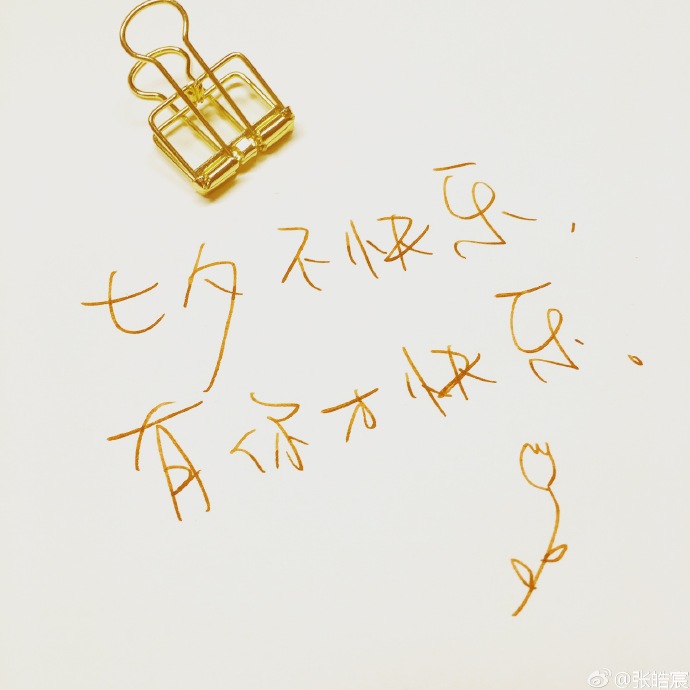 七夕不快乐.
有你才快乐。
@张皓宸